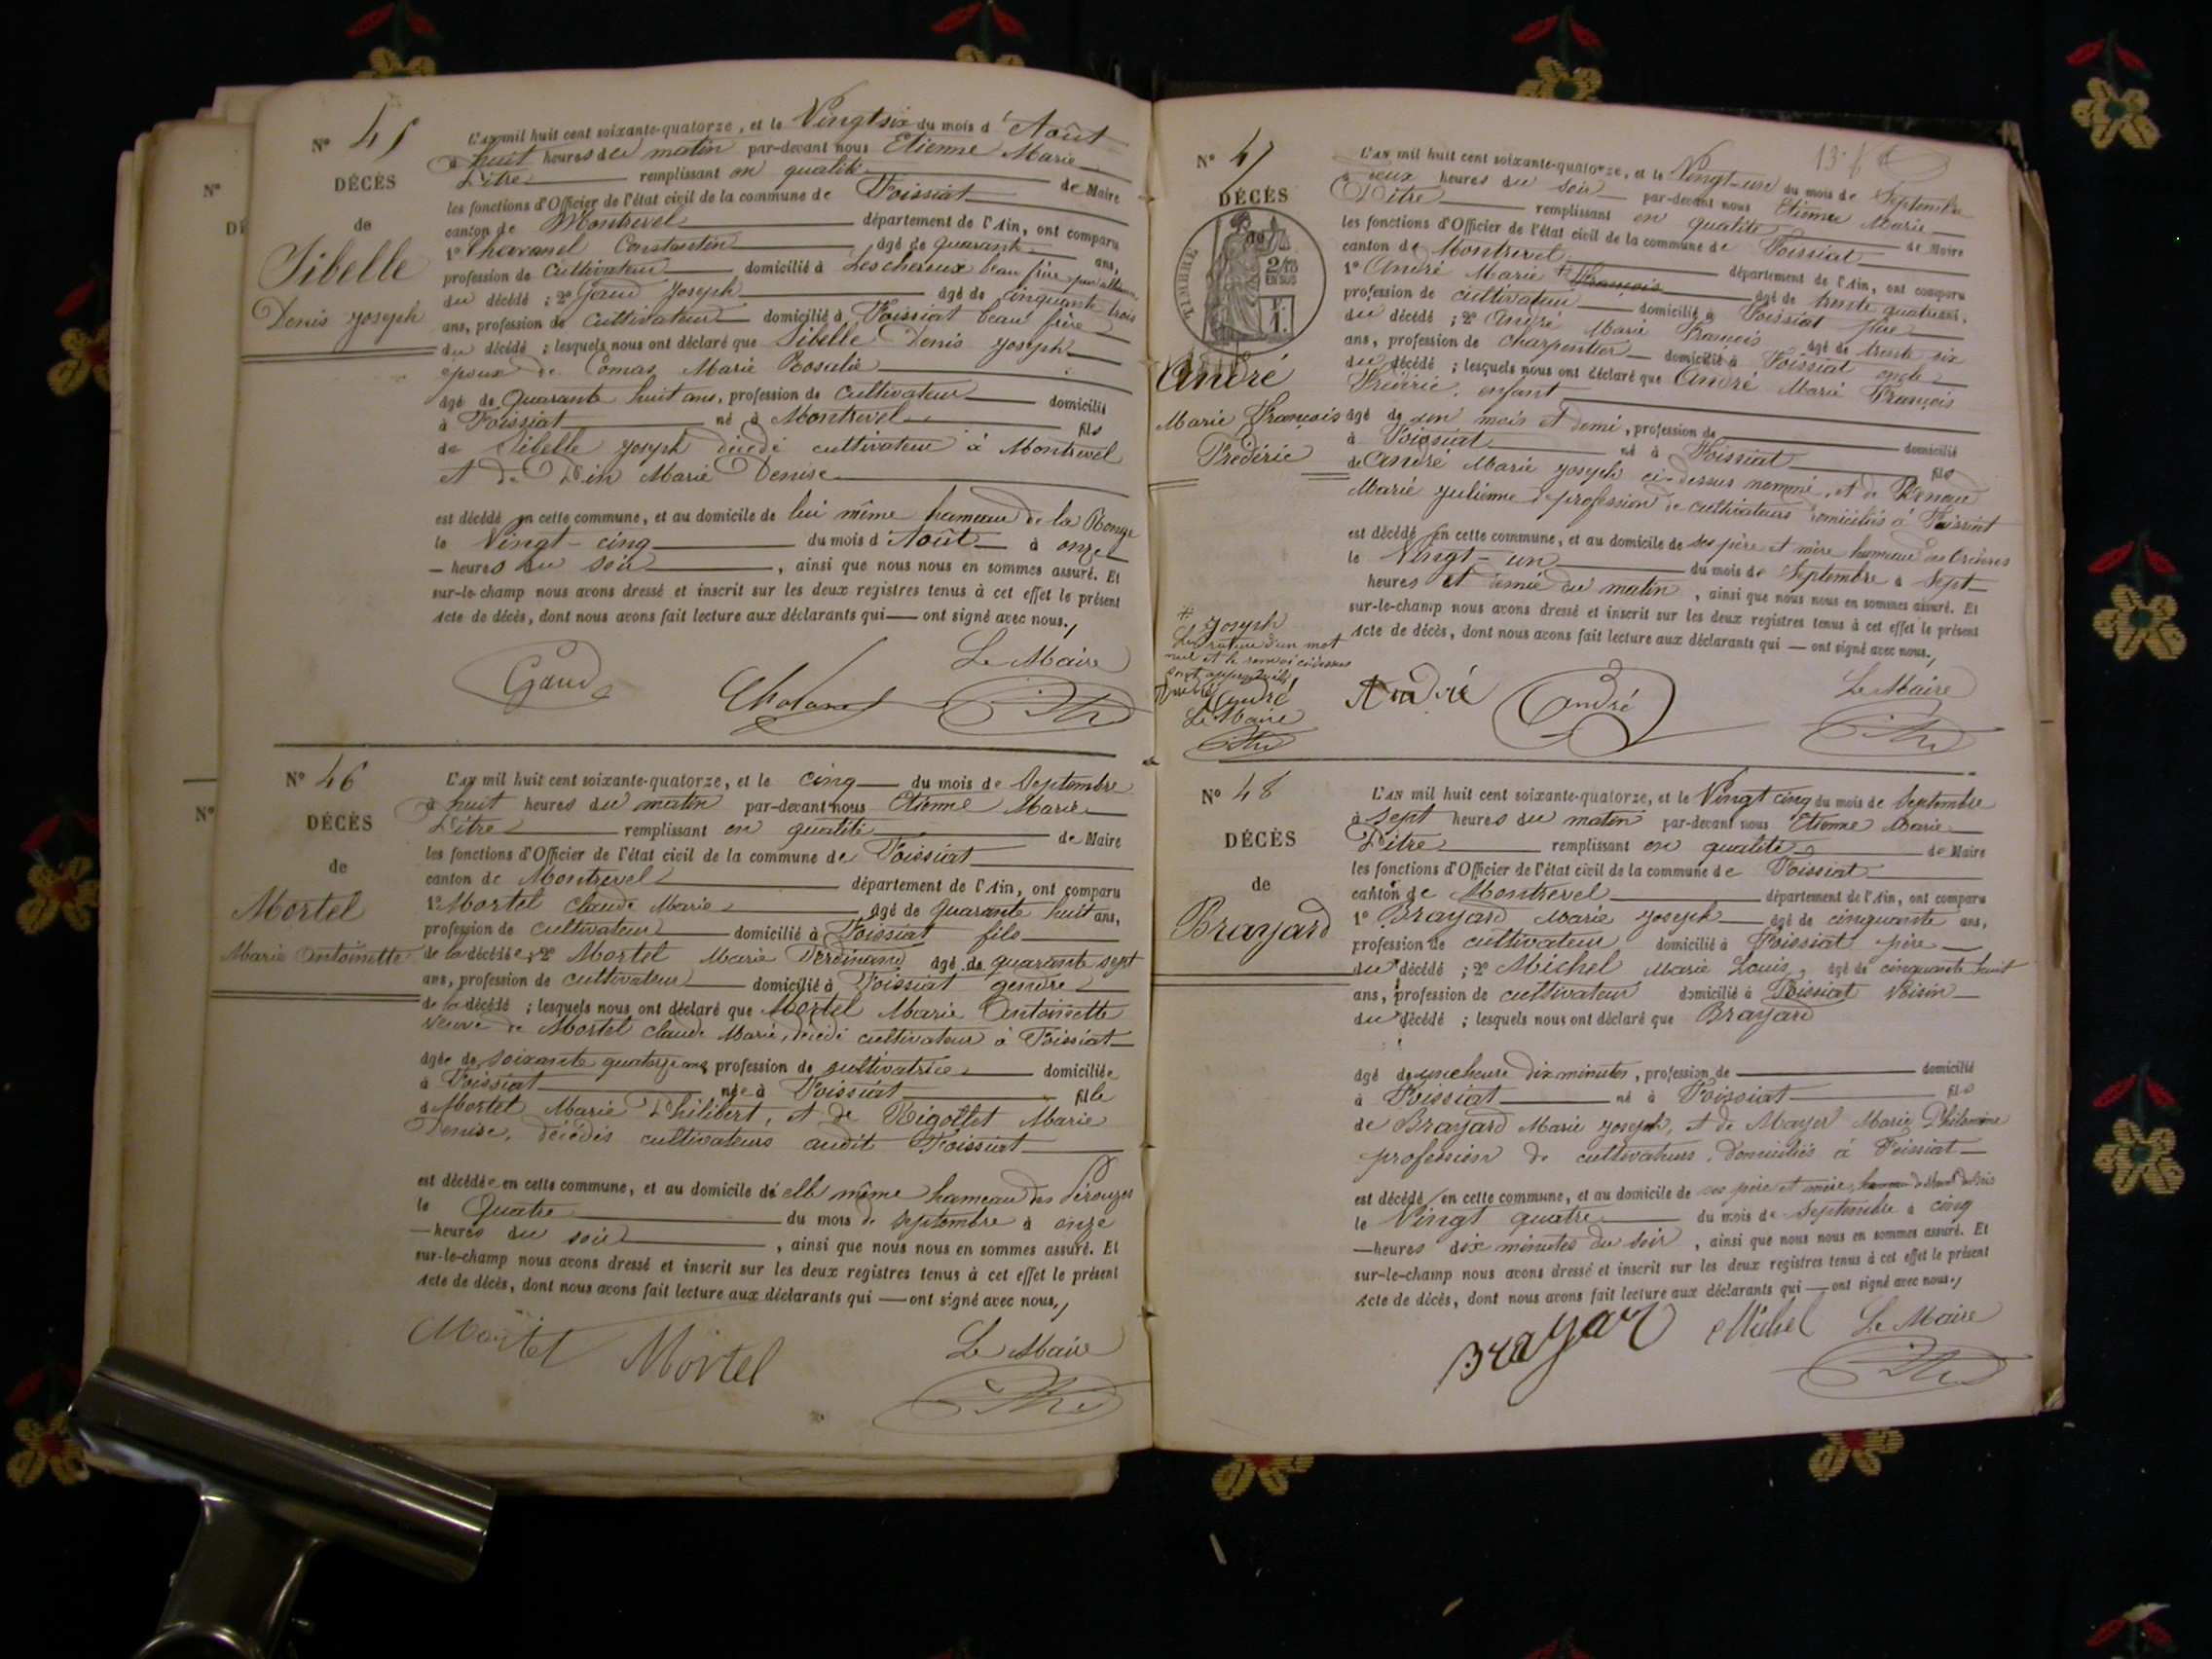 N° 45
DÉCÈS
de
Sibelle
Denis Joseph
L'AN mil huit cent soixante-quatorze, et le Vingt six du mois d'Août
à huit heures du matin par-devant nous Etienne Marie
Pitre remplissant en qualité de Maire
les fonctions d'Officier de l'état civil de la commune de Foissiat
canton de Montrevel département de l'Ain, ont comparu
1° Chavanel Constantin âgé de quarante ans,
profession de cultivateur domicilié à Lescheroux beau frère par alliance
du décédé ; 2° Gaud Joseph âgé de cinquante trois
ans, profession de cultivateur domicilié à Foissiat beau frère
du décédé ; lesquels nous ont déclaré que Sibelle Denis Joseph
époux de Comas Marie Rosalie
âgé de Quarante huit ans, profession de cultivateur domicilié
à Foissiat né à Montrevel fils
de Sibelle Joseph décédé cultivateur à Montrevel
et de Pin Marie Denise
est décédé en cette commune, et au domicile de lui même hameau de la
le Vingt-cinq du mois d'Août à onze
heures du soir, ainsi que nous nous en sommes assuré. Et
sur-le-champ nous avons dressé et inscrit sur les deux registres tenus à cet effet le présent
Acte de décès, dont nous avons fait lecture aux déclarants qui — ont signé avec nous.
Le Maire
Gaud
N° 46
DÉCÈS
de
Mortel
Marie Antoinette
L'AN mil huit cent soixante-quatorze, et le cinq du mois de Septembre
à huit heures du matin par-devant nous Etienne Marie
Pitre remplissant en qualité de Maire
les fonctions d'Officier de l'état civil de la commune de Foissiat
canton de Montrevel département de l'Ain, ont comparu
1° Mortel Claude Marie âgé de quarante huit ans,
profession de cultivateur domicilié à Foissiat fils
de la décédée ; 2° Mortel Marie Ferdinand âgé de quarante sept
ans, profession de cultivateur domicilié à Foissiat gendre
de la décédé ; lesquels nous ont déclaré que Mortel Marie Antoinette
veuve de Mortel Claude Marie, décédé cultivateur à Foissiat
âgée de soixante quatorze ans, profession de cultivatrice domiciliée
à Foissiat née à Foissiat fille
de Mortel Marie Philibert, et de Rigollet Marie
Denise, décédés cultivateurs audit Foissiat
est décédée en cette commune, et au domicile de elle même hameau des
le Quatre du mois de septembre à onze
heures du soir, ainsi que nous nous en sommes assuré. Et
sur-le-champ nous avons dressé et inscrit sur les deux registres tenus à cet effet le présent
Acte de décès, dont nous avons fait lecture aux déclarants qui — ont signé avec nous.
Mortel Mortel
Le Maire
N° 47
DÉCÈS
de
TIMBRE
2/10
EN SUS
F.
1.
André
Marie François
Frédéric
L'AN mil huit cent soixante-quatorze, et le Vingt-un du mois de Septembre
à deux heures du soir par-devant nous Etienne Marie
Pitre remplissant en qualité de Maire
les fonctions d'Officier de l'état civil de la commune de Foissiat
canton de Montrevel département de l'Ain, ont comparu
1° André Marie # François âgé de trente quatre ans,
profession de cultivateur domicilié à Foissiat père
du décédé ; 2° André Marie François âgé de trente six
ans, profession de charpentier domicilié à Foissiat oncle
du décédé ; lesquels nous ont déclaré que André Marie François
Frédéric, enfant
âgé de un mois et demi, profession de domicilié
à Foissiat né à Foissiat fils
de André Marie Joseph ci-dessus nommé, et de
Marie Julienne, profession de cultivateurs domiciliés à Foissiat
est décédé en cette commune, et au domicile de ses père et mère hameau des
le Vingt-un du mois de Septembre à Sept
heures et demie du matin, ainsi que nous nous en sommes assuré. Et
sur-le-champ nous avons dressé et inscrit sur les deux registres tenus à cet effet le présent
Acte de décès, dont nous avons fait lecture aux déclarants qui — ont signé avec nous.
# Joseph
La rature d'un mot
nul et le renvoi ci-dessus
sont approuvés
André
Le Maire
André
André
Le Maire
N° 48
DÉCÈS
de
Brayard
L'AN mil huit cent soixante-quatorze, et le Vingt cinq du mois de Septembre
à sept heures du matin par-devant nous Etienne Marie
Pitre remplissant en qualité de Maire
les fonctions d'Officier de l'état civil de la commune de Foissiat
canton de Montrevel département de l'Ain, ont comparu
1° Brayard Marie Joseph âgé de cinquante ans,
profession de cultivateur domicilié à Foissiat père
du décédé ; 2° Michel Marie Louis, âgé de cinquante huit
ans, profession de cultivateur domicilié à Foissiat voisin
du décédé ; lesquels nous ont déclaré que Brayard
âgé de une heure dix minutes, profession de domicilié
à Foissiat né à Foissiat fils
de Brayard Marie Joseph, et de Mayer Marie Philomène
profession de cultivateurs, domiciliés à Foissiat
est décédé en cette commune, et au domicile de ses père et mère,
le Vingt quatre du mois de Septembre à cinq
heures dix minutes du soir, ainsi que nous nous en sommes assuré. Et
sur-le-champ nous avons dressé et inscrit sur les deux registres tenus à cet effet le présent
Acte de décès, dont nous avons fait lecture aux déclarants qui — ont signé avec nous.
Brayar Michel Le Maire